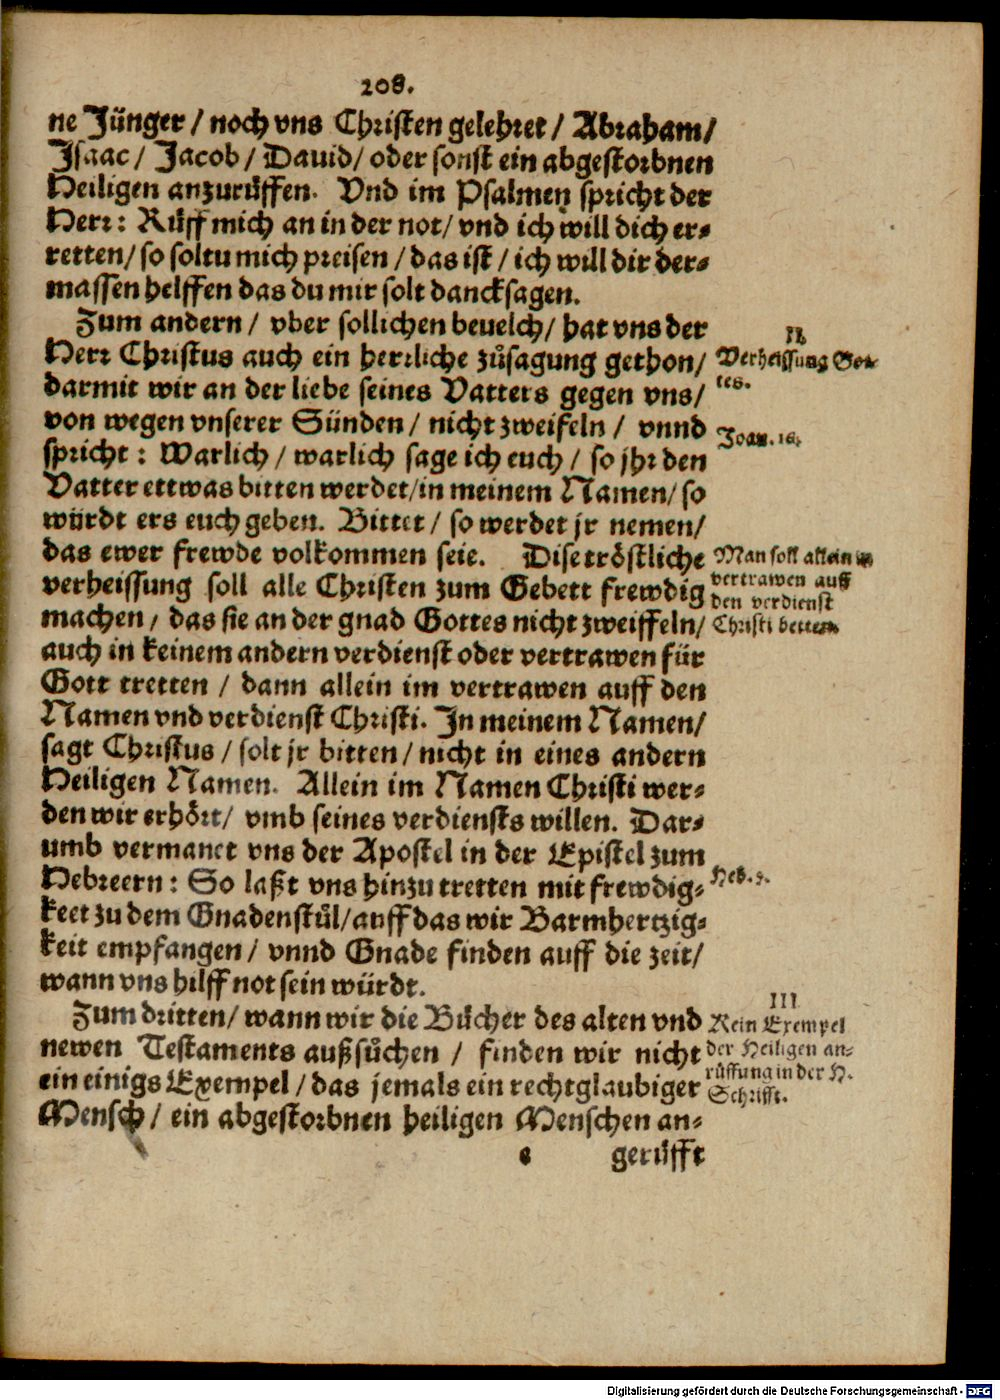 208.
ne Jünger / noch vns Christen gelehret / Abraham /
Isaac / Jacob / Dauid / oder sonst ein abgestorbnen
Heiligen anzurůffen. Vnd im Psalmen spricht der
Herr: Růff mich an in der not / vnd ich will dich er⸗
retten / so soltu mich preisen / das ist / ich will dir der⸗
massen helffen das du mir solt dancksagen.
Zum andern / vber sollichen beuelch / hat vns der
Herr Christus auch ein herrliche zůsagung gethon /
darmit wir an der liebe seines Vatters gegen vns /
von wegen vnserer Sünden / nicht zweifeln / vnnd
spricht: Warlich / warlich sage ich euch / so jhr den
Vatter ettwas bitten werdet / in meinem Namen / so
würdt ers euch geben. Bittet / so werdet jr nemen /
das ewer frewde volkommen seie. Dise tröstliche
verheissung soll alle Christen zum Gebett frewdig
machen / das sie an der gnad Gottes nicht zweiffeln /
auch in keinem andern verdienst oder vertrawen für
Gott tretten / dann allein im vertrawen auff den
Namen vnd verdienst Christi. In meinem Namen /
sagt Christus / solt jr bitten / nicht in eines andern
Heiligen Namen. Allein im Namen Christi wer⸗
den wir erhört / vmb seines verdiensts willen. Dar⸗
umb vermanet vns der Apostel in der Epistel zum
Hebreern: So laßt vns hinzu tretten mit frewdig⸗
keet zu dem Gnadenstůl / auff das wir Barmhertzig⸗
keit empfangen / vnnd Gnade finden auff die zeit /
wann vns hilff not sein würdt.
Zum dritten / wann wir die Bůcher des alten vnd
newen Testaments außsůchen / finden wir nicht
ein einigs Exempel / das jemals ein rechtglaubiger
Mensch / ein abgestorbnen heiligen Menschen an⸗
e gerůfft
II.
Verheissung Got⸗
tes.
Joan. 16.
Man soll allein in
vertrawen auff
den verdienst
Christi betten.
Heb.
III
Kein Exempel
der Heiligen an⸗
rüffung in der H.
Schrifft.
Digitalisierung gefördert durch die Deutsche Forschungsgemeinschaft - DFG